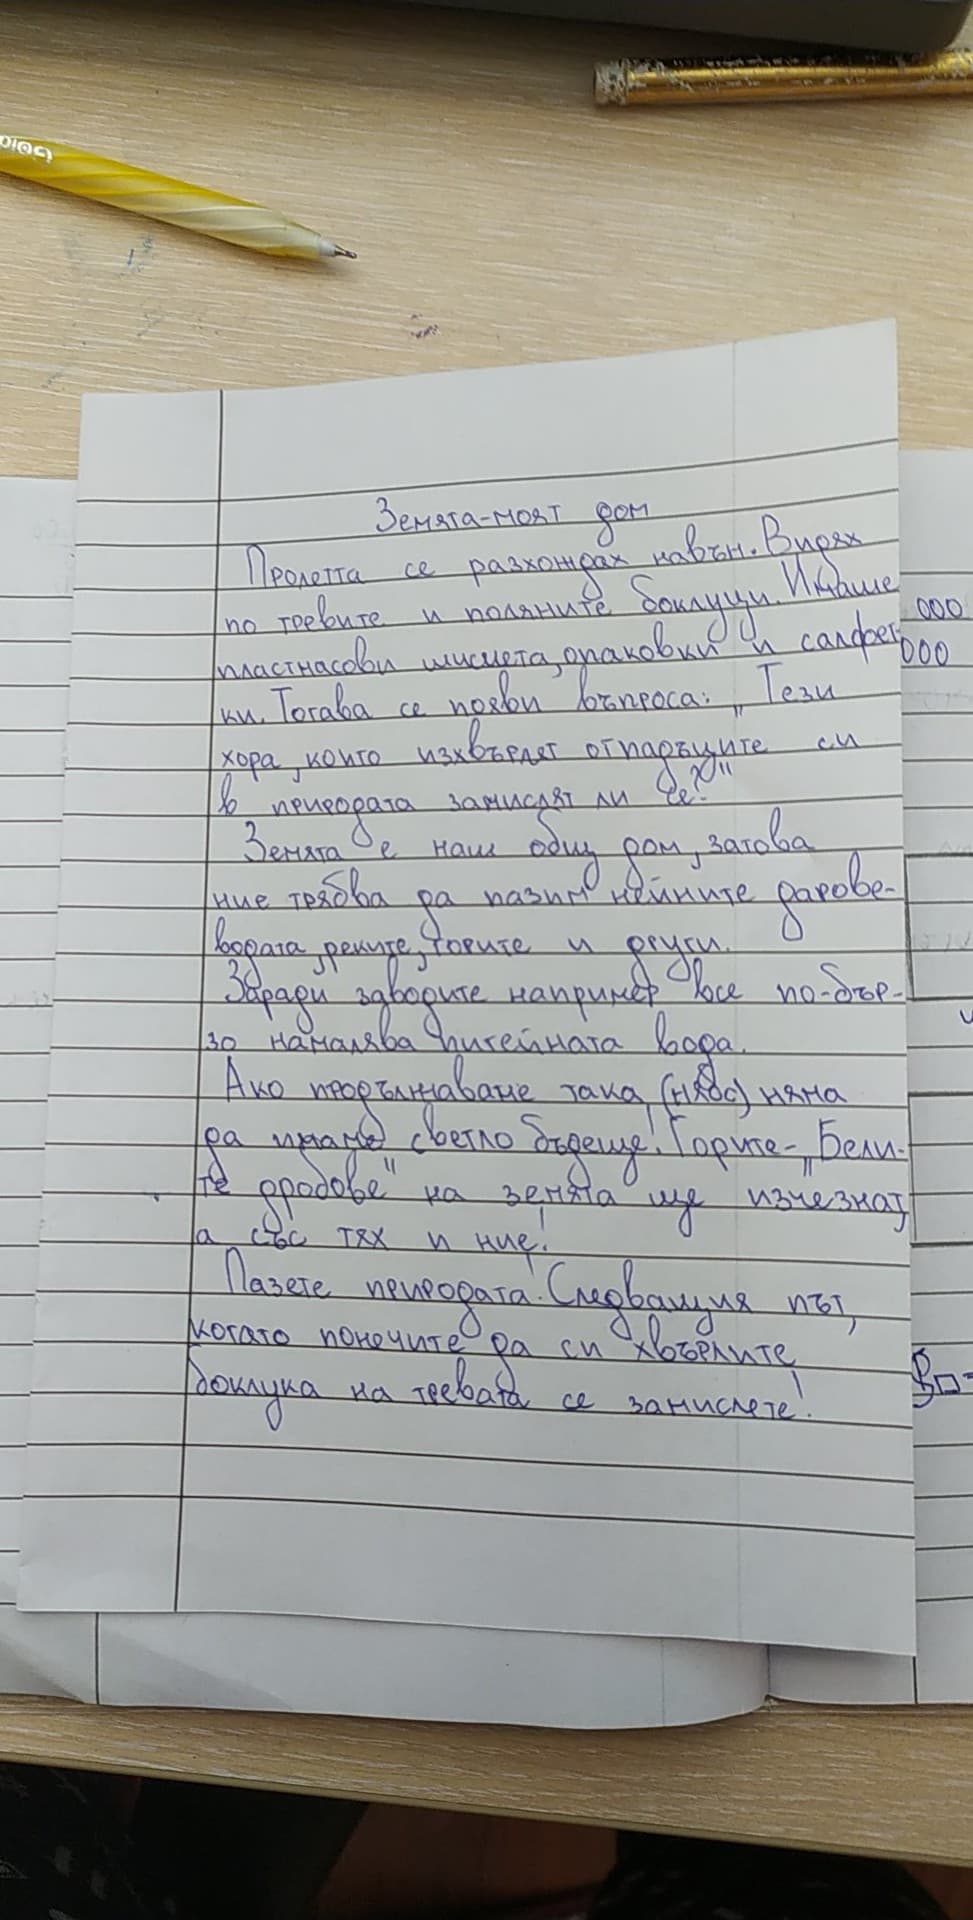 Земята-моят дом
Пролетта се разхождах навън. Видях
по тревите и поляните боклуци. Имаше
пластмасови шишета, опаковки и салфет-
ки. Тогава се появи въпроса: „Тези
хора, които изхвърлят отпадъците си
в природата замислят ли се?"
Земята е наш общ дом, затова
ние трябва да пазим нейните дарове-
водата, реките, горите и други.
Заради заводите например все по-бър-
зо намалява питейната вода.
Ако продължаваме така, няма
да имаме светло бъдеще! Горите-„Бели-
те дробове" на земята ще изчезнат,
а със тях и ние!
Пазете природата! Следващия път,
когато понечите да си хвърлите
боклука на тревата се замислете!
000
000